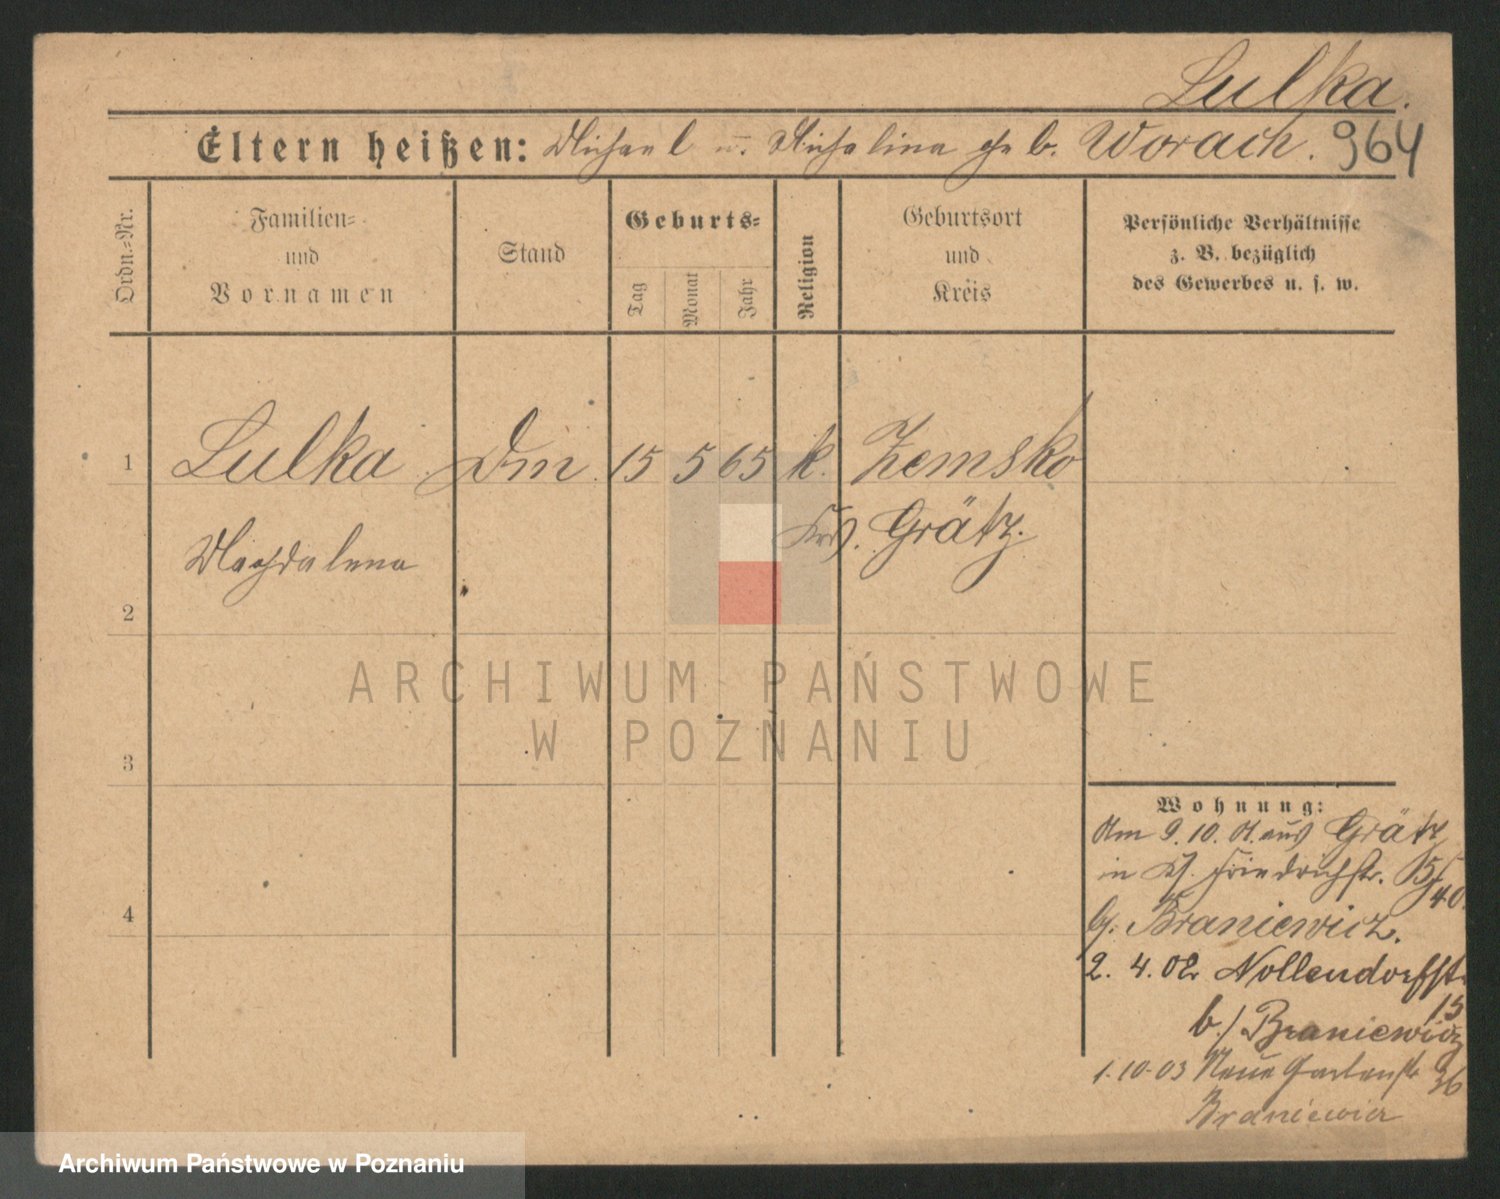 Lulka.
Eltern heißen: Michael u. Michalina geb. Worach. 964
Ordn.=Nr.
Familien=
und
Vornamen
Stand
Geburts=
Tag
Monat
Jahr
Religion
Geburtsort
und
Kreis
Persönliche Verhältnisse
z. B. bezüglich
des Gewerbes u. s. w.
1 Lulka Dm. 15 5 65 k. Zemsko
Krs. Grätz.
Magdalena
2
3
4
ARCHIWUM PAŃSTWOWE
W POZNANIU
Wohnung:
Am 9.10. aus Grätz
in Friedrichstr.
40.
b/. Braniewicz.
2. 4. 02 Nollendorfstr.
15
b./ Braniewicz
1.10.03 Neue Gartenstr 36
Braniewicz
Archiwum Państwowe w Poznaniu